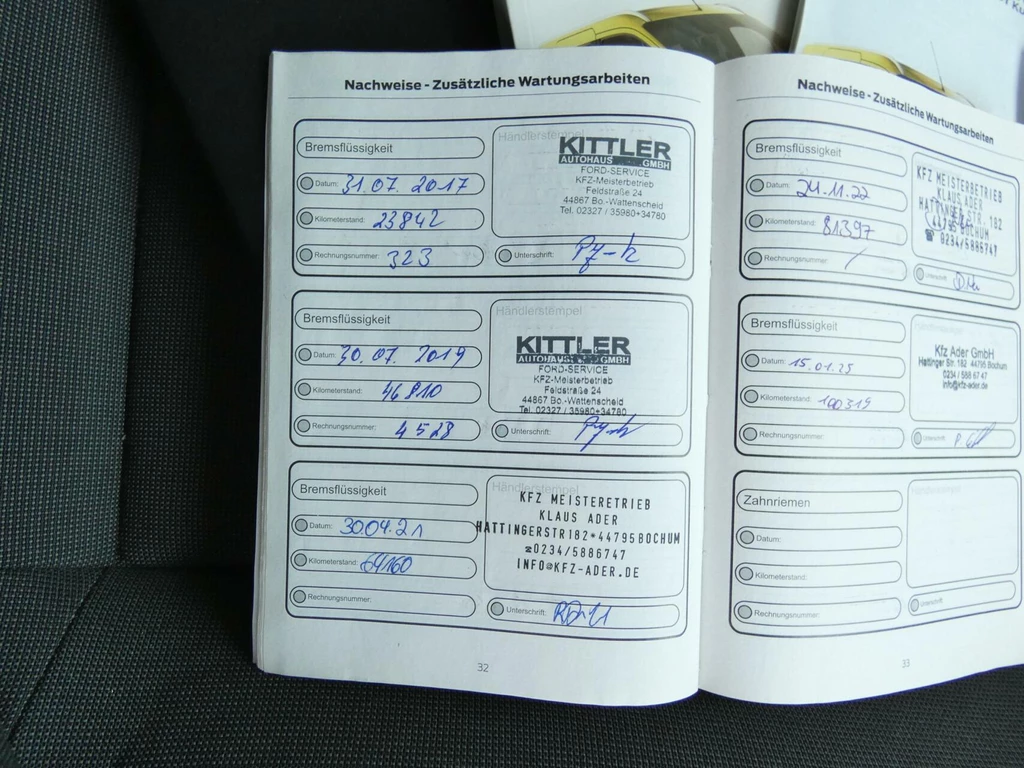 Nachweise - Zusätzliche Wartungsarbeiten
Bremsflüssigkeit
Datum: 31.07.2017
Kilometerstand: 23842
Rechnungsnummer: 323
Händlerstempel
KITTLER
AUTOHAUS GMBH
FORD-SERVICE
KFZ-Meisterbetrieb
Feldstraße 24
44867 Bo.-Wattenscheid
Tel. 02327 / 35980+34780
Unterschrift:
Bremsflüssigkeit
Datum: 30.07.2019
Kilometerstand: 46810
Rechnungsnummer: 4528
Händlerstempel
KITTLER
AUTOHAUS GMBH
FORD-SERVICE
KFZ-Meisterbetrieb
Feldstraße 24
44867 Bo.-Wattenscheid
Tel. 02327 / 35980+34780
Unterschrift:
Bremsflüssigkeit
Datum: 30.04.21
Kilometerstand: 64160
Rechnungsnummer:
Händlerstempel
KFZ MEISTERETRIEB
KLAUS ADER
HATTINGERSTR182*44795BOCHUM
☎0234/5886747
INFO@KFZ-ADER.DE
Unterschrift:
32
Nachweise - Zusätzliche Wartungsarbeiten
Bremsflüssigkeit
Datum: 24.11.22
Kilometerstand: 81397
Rechnungsnummer: /
KFZ MEISTERBETRIEB
KLAUS ADER
HATTINGER STR. 182
44795 BOCHUM
☎ 0234/5886747
Unterschrift:
Bremsflüssigkeit
Datum: 15.01.25
Kilometerstand: 100319
Rechnungsnummer:
Kfz Ader GmbH
Hattinger Str. 182 44795 Bochum
0234 / 588 67 47
info@kfz-ader.de
Unterschrift:
Zahnriemen
Datum:
Kilometerstand:
Rechnungsnummer:
Händlerstempel
Unterschrift:
33